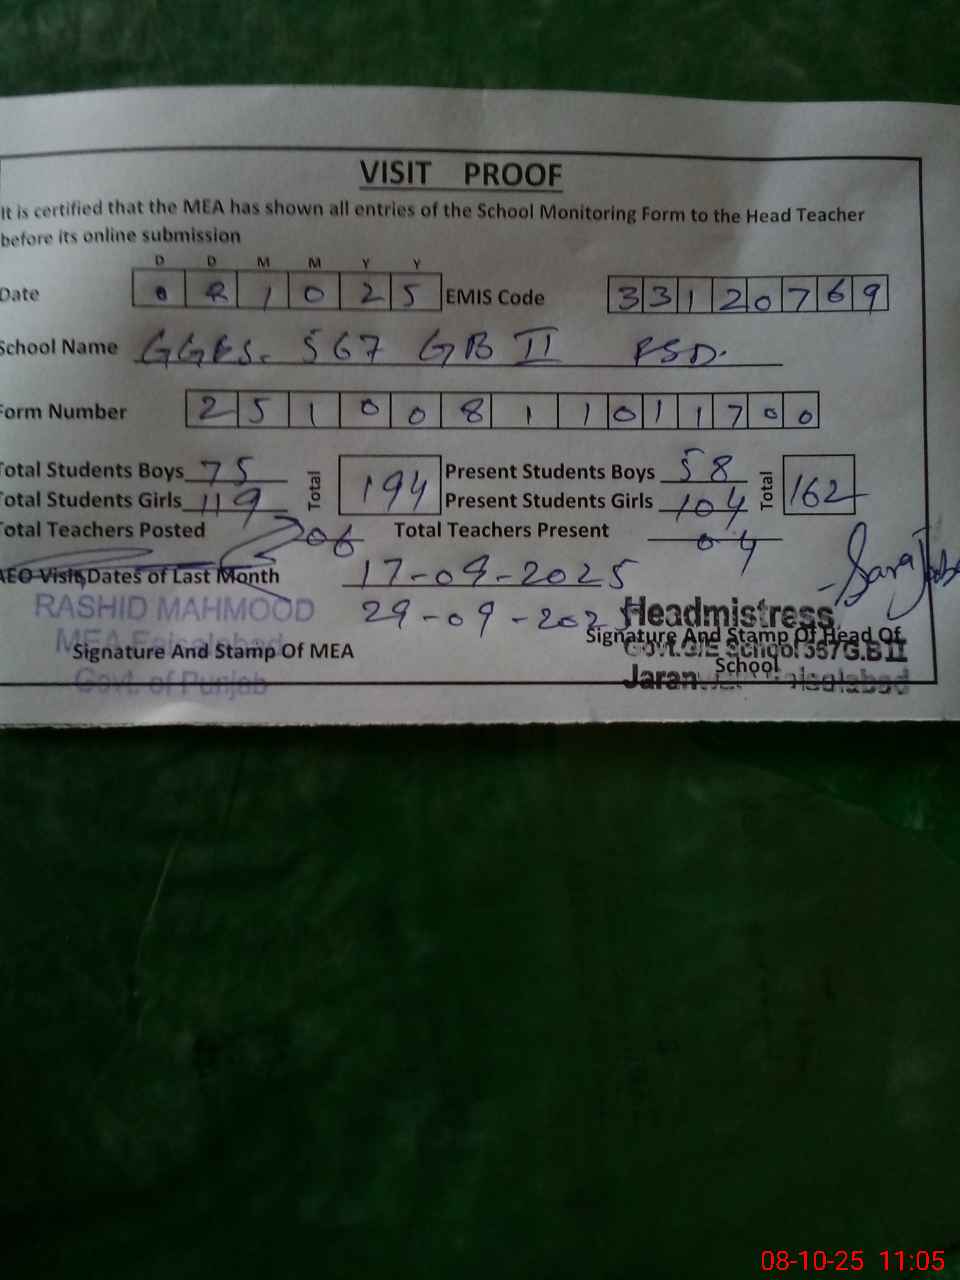 VISIT PROOF
It is certified that the MEA has shown all entries of the School Monitoring Form to the Head Teacher
before its online submission
D D M M Y Y
Date 0 8 1 0 2 5 EMIS Code 3 3 1 2 0 7 6 9
School Name GGES. 567 GB II FSD.
Form Number 2 5 1 0 0 8 1 1 0 1 1 7 0 0
Total Students Boys 75 Total 194 Present Students Boys 58 Total 162
Total Students Girls 119 Present Students Girls 104
Total Teachers Posted 06 Total Teachers Present 04
AEO Visit Dates of Last Month 17-09-2025
29-09-202
RASHID MAHMOOD
MEA Faisalabad
Govt. of Punjab
Signature And Stamp Of MEA
Headmistress
Signature And Stamp Of Head Of
School
Govt. G/E School 567 G.B II
Jaran
08-10-25 11:05